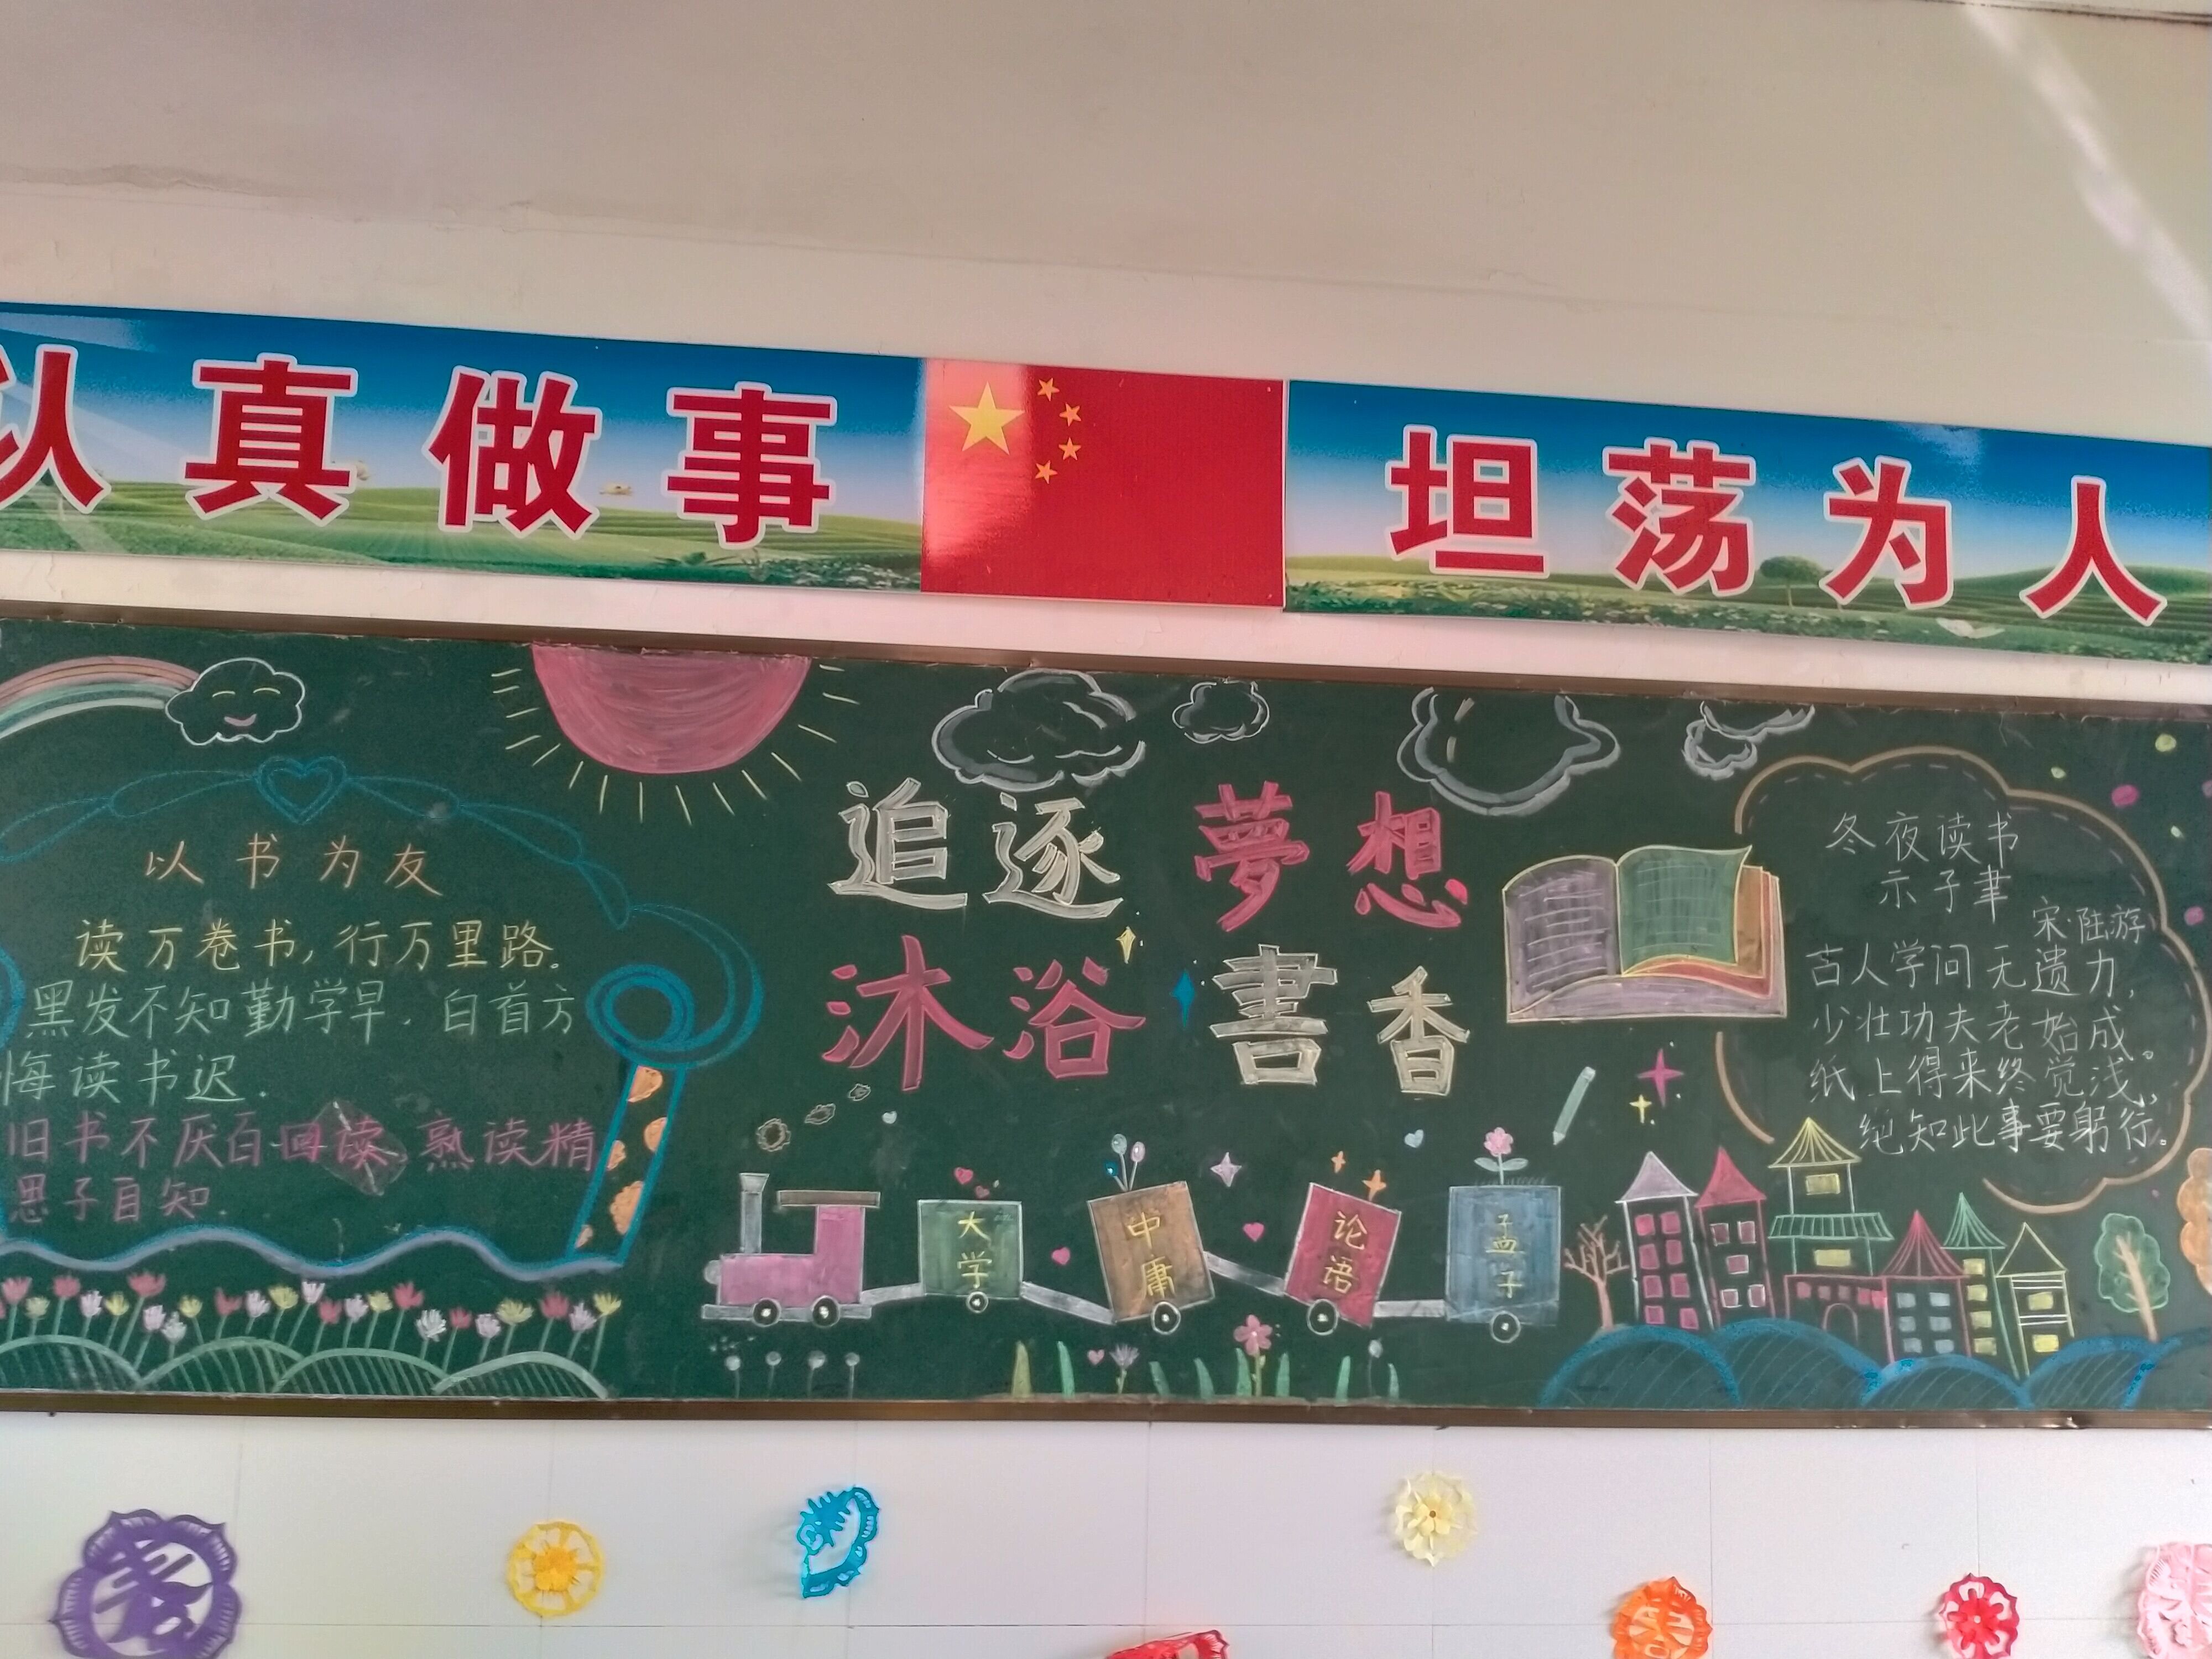 认真做事
坦荡为人
以书为友
读万卷书,行万里路.
黑发不知勤学早.白首方
悔读书迟.
旧书不厌百回读.熟读精
思子自知.
追逐夢想
沐浴書香
大学
中庸
论语
孟子
冬夜读书
示子聿
宋·陆游
古人学问无遗力,
少壮功夫老始成。
纸上得来终觉浅,
绝知此事要躬行。
春